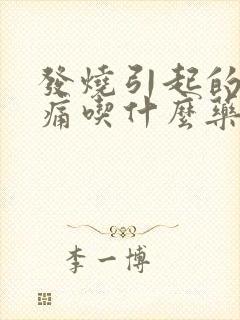 發燒引起的
痛喫什麼藥
李一博